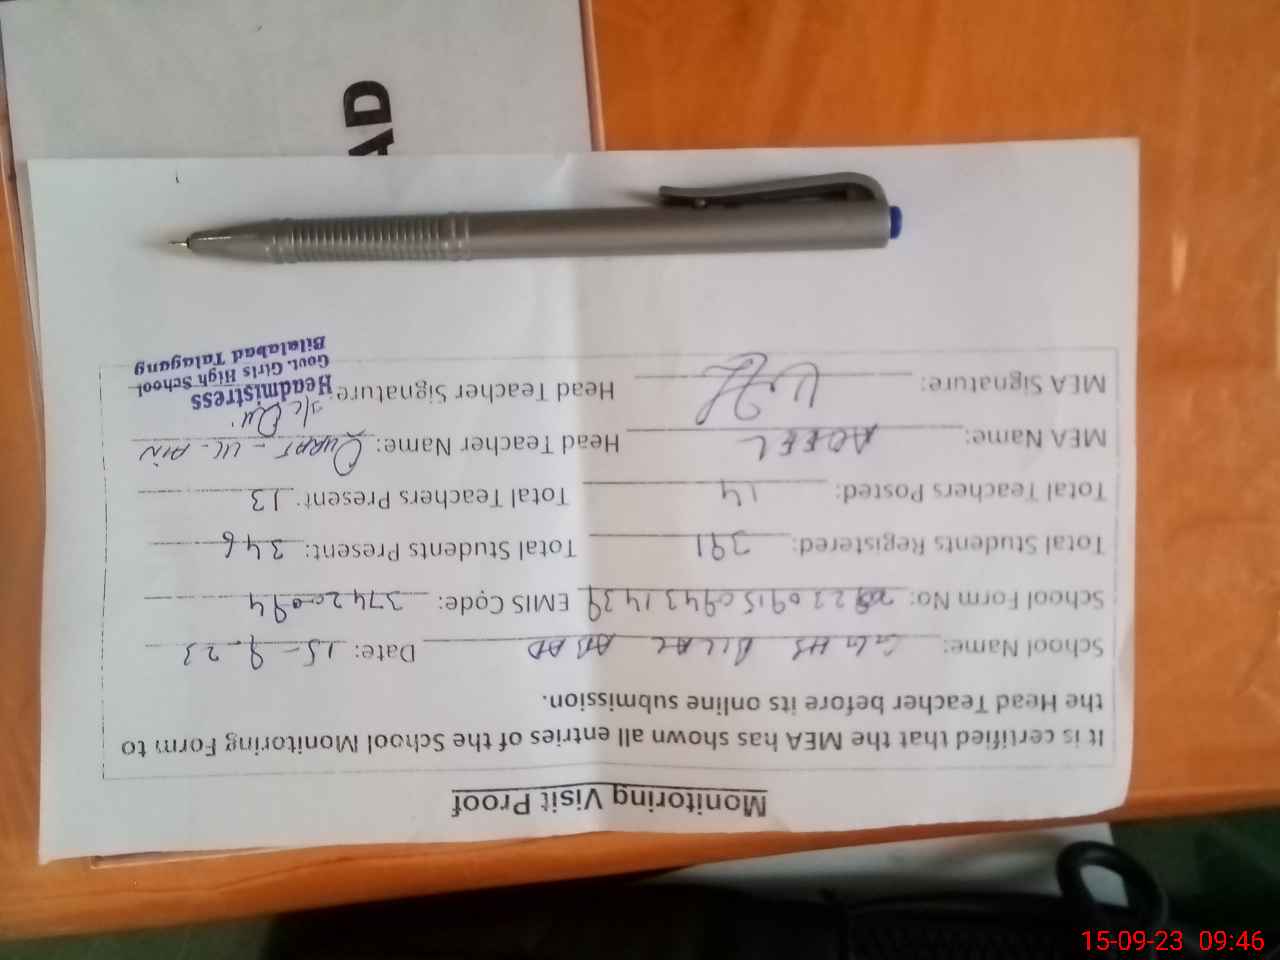 Monitoring Visit Proof
It is certified that the MEA has shown all entries of the School Monitoring Form to
the Head Teacher before its online submission.
School Name: GGHS BILAL ABAD Date: 15-9-23
School Form No: EMIS Code: 37420094
Total Students Registered: 391 Total Students Present: 346
Total Teachers Posted: 14 Total Teachers Present: 13
MEA Name: Head Teacher Name: QURAT-UL-AIN
MEA Signature: Head Teacher Signature:
Headmistress
Govt. Girls High School
Bilalabad Talagang
AD
15-09-23 09:46